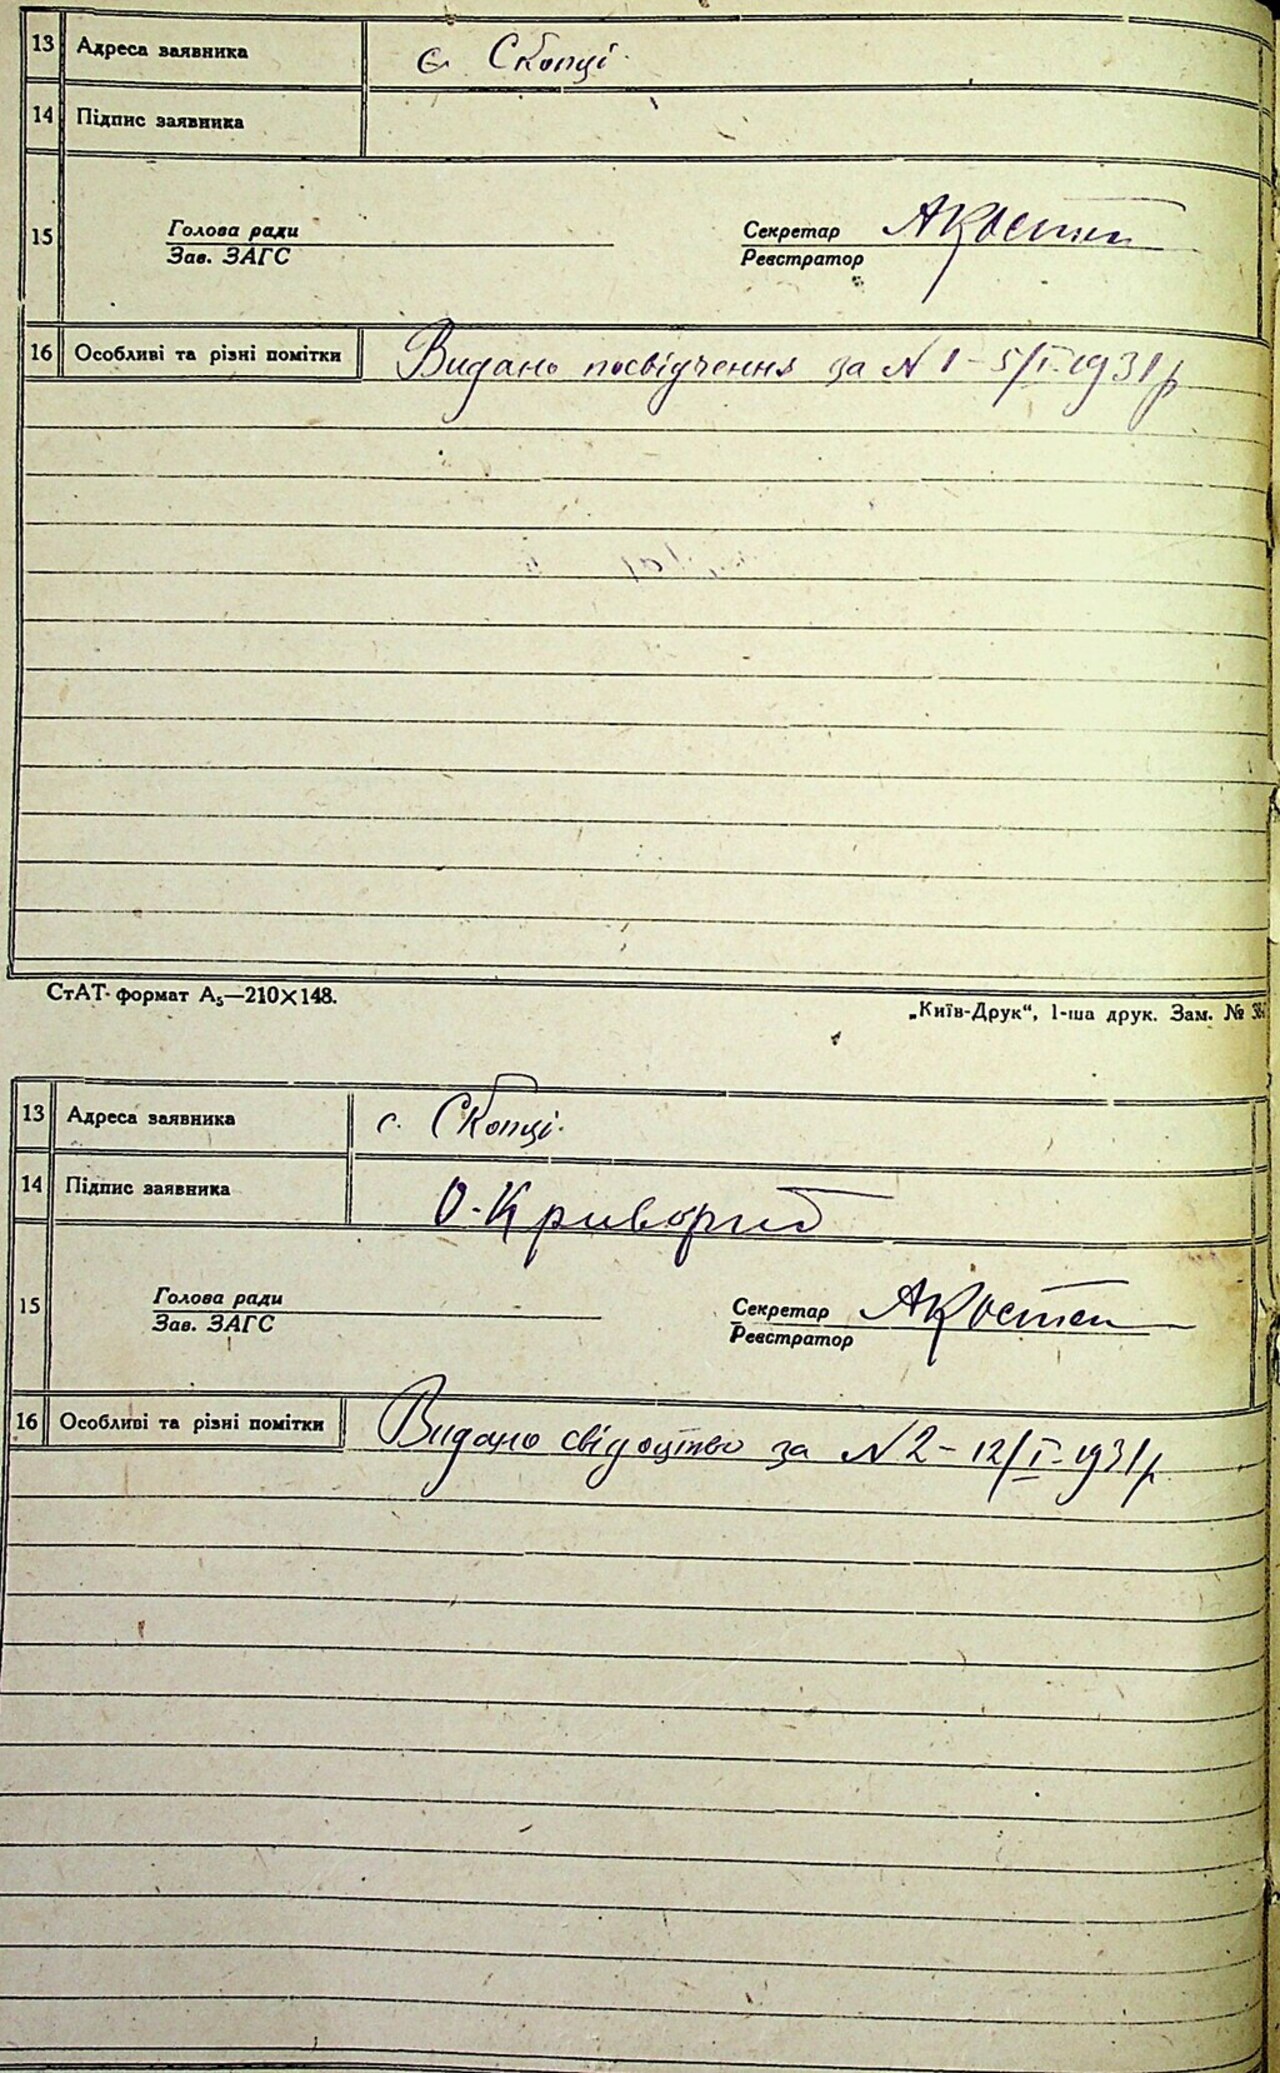 13 Адреса заявника с. Скопці.
14 Підпис заявника
15 Голова ради Секретар АКостен
Зав. ЗАГС Реєстратор
16 Особливі та різні помітки Видано посвідчення за N 1 – 5/I-1931р
СтАТ-формат А5—210×148.
„Київ-Друк“, 1-ша друк. Зам. №
13 Адреса заявника с. Скопці.
14 Підпис заявника О. Криворчуб
15 Голова ради Секретар АКостен
Зав. ЗАГС Реєстратор
16 Особливі та різні помітки Видано свідоцтво за N 2 – 12/I-1931р